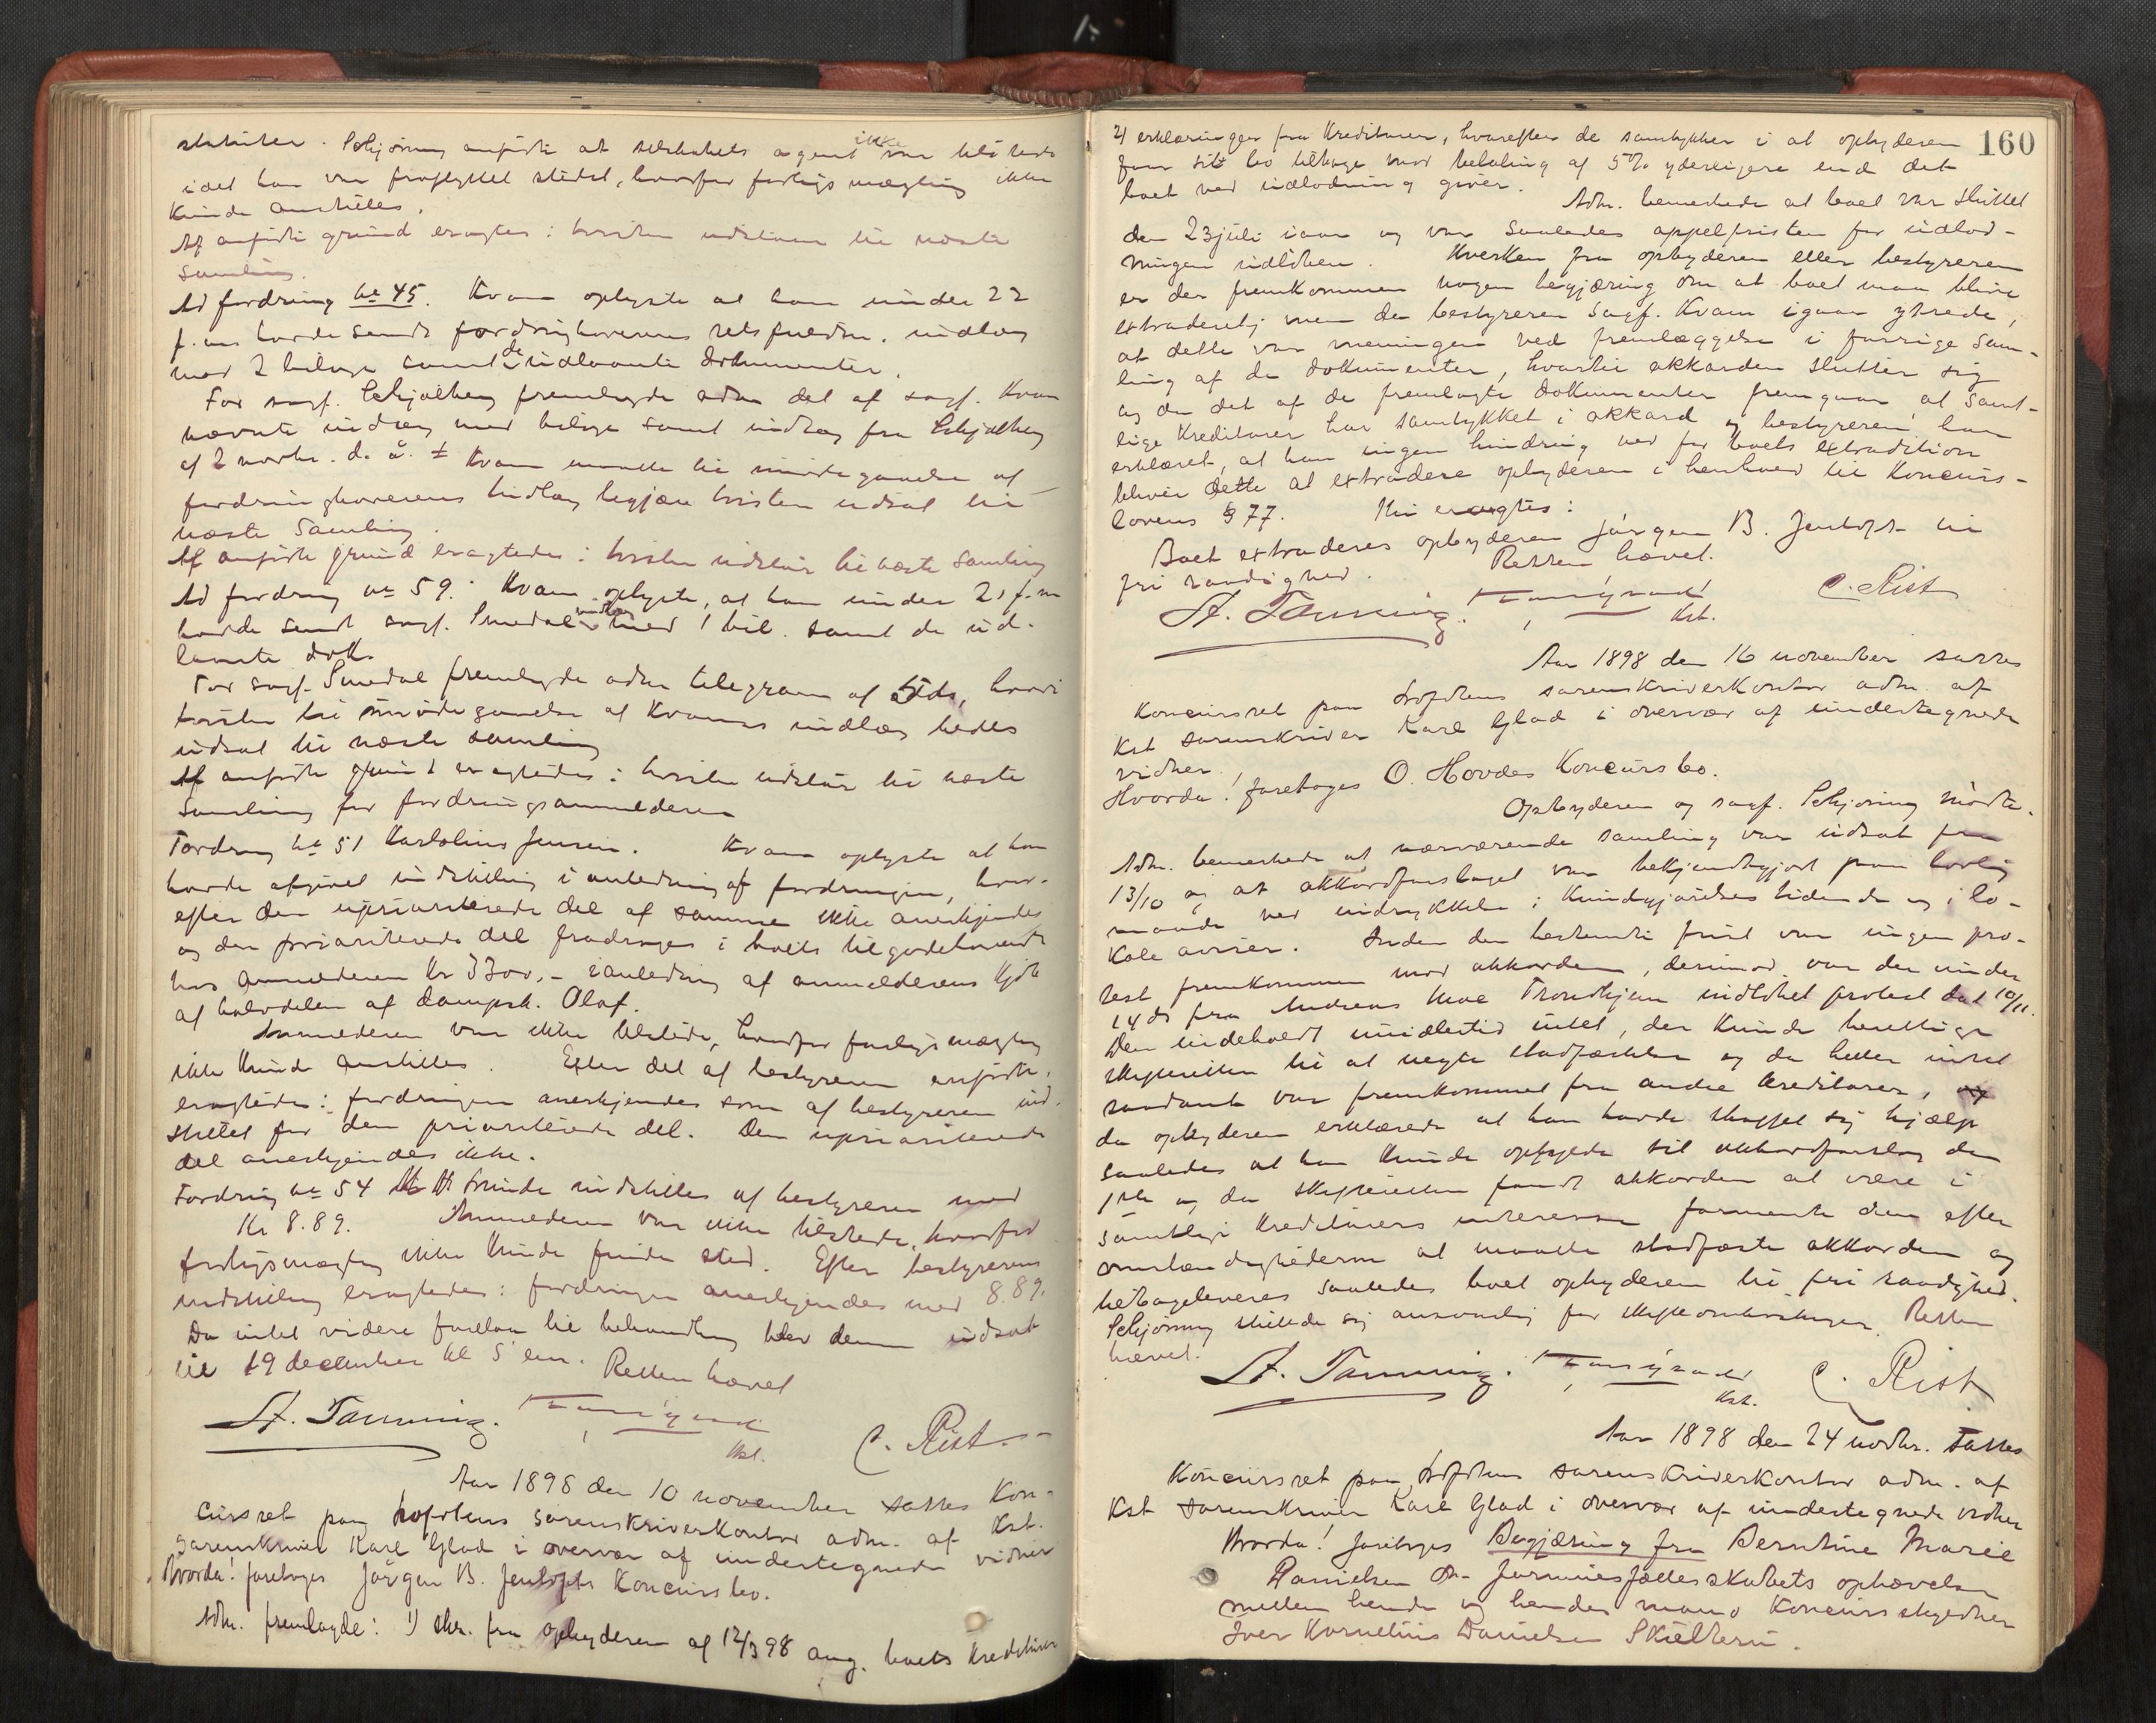 statuter. Schjöning anførte at selskabets agent ikke var tilstede
idet han var fraflyttet stedet, hvorfor forligsmægling ikke
kunde anstilles.
Af anførte grund eragtes: tvisten udstaar til næste
samling.
Ad fordring № 45. Kvam oplyste at han under 22
f. m. havde sendt fordringshaverens retsfuldm. indlæg
med 2 bilage samt de udlaante dokumenter.
For sagf. Schjølberg fremlagde adm. det af sagf. Kvam
nævnte indlæg med bilage samt indlæg fra Schjølberg
af 2 novbr. d. å. Kvam maatte til imødegaaelse af
fordringshaverens indlæg begjære tvisten udsat til
næste samling.
Af anførte grund eragtedes: tvisten udstaar til næste samling
Ad fordring № 59. Kvam oplyste, at han under 21 f. m
havde sendt sagf. Smedal indlæg med 1 bil. samt de ud-
laante dok.
For sagf. Smedal fremlagde adm telegram af 5 ds, hvori
tvisten til imødegaaelse af Kvams indlæg bedes
udsat til næste samling
Af anførte grund eragtedes: tvisten udstaar til næste
samling for fordringsanmelderen
Fordring № 51 Karolius Jensen. Kvam oplyste at han
havde afgivet indstilling i anledning af fordringen, hvor-
efter den uprioriterede del af samme ikke anerkjendes
og den prioriterede del fradrages i boets tilgodehavende
hos anmelderen Kr 3300,- i anledning af anmelderens kjøb
af halvdelen af dampsk. Olaf.
Anmelderen var ikke tilstede, hvorfor forligsmægling
ikke kunde anstilles. Efter det af bestyreren anførte
eragtedes: fordringen anerkjendes som af bestyreren ind-
stillet for den prioriterede del. Den uprioriterede
del anerkjendes ikke.
Fordring № 54 indstilles af bestyreren med
Kr 8.89. Anmelderen var ikke tilstede, hvorfor
forligsmægling ikke kunde finde sted. Efter bestyrerens
indstilling eragtedes: fordringen anerkjendes med 8.89.
Da intet videre forelaa til behandling blev denne udsat
til 19 december kl 5 em. Retten hævet
A. Tanning. C. Rist
Kst.
Aar 1898 den 10 november sattes Kon-
cursret paa Lofotens sorenskriverkontor adm. af Kst.
sorenskriver Karl Glad i overvær af undertegnede vidner
Hvorda! foretoges Jörgen B. Jentofts Koncursbo.
Adm. fremlagde: 1) skr. fra opbyderen af 12/3 98 ang. boets kreditorer
160
2) erklæringer fra kreditorer, hvorefter de samtykker i at opbyderen
faar sit bo tilbage mod betaling af 5% yderligere end det
boet ved udlodning giver.
Adm. bemerkede at boet var sluttet
den 23 juli iaar og var saaledes appelfristen for udlod-
ningen udløben. Hverken fra opbyderen eller bestyreren
er der fremkommen nogen begjæring om at boet maa blive
extraderet; men da bestyreren Sagf. Kvam igaar ytrede,
at dette var meningen ved fremlæggelse i forrige Sam-
ling af de dokumenter, hvortil akkorden slutter sig
og da det af de fremlagte dokumenter fremgaar, at samt-
lige kreditorer har samtykket i akkord og bestyreren har
erklæret, at han ingen hindring ved for boets extradition
bliver dette at extradere opbyderen i henhold til Koncurs-
lovens § 77. Thi eragtes:
Boet extraderes opbyderen Jörgen B. Jentoft til
fri raadighed. Retten hævet.
A. Tanning. C. Rist
Kst.
Aar 1898 den 16 november sattes
Koncursret paa Lofotens sorenskriverkontor adm. af
Kst sorenskriver Karl Glad i overvær af undertegnede
vidner.
Hvorda! foretoges O. Hovdes Koncursbo.
Opbyderen og sagf. Schjöning mödte.
Adm. bemerkede at nærværende samling var udsat fra
13/10 og at akkordforslaget var bekjendtgjort paa lovlig
maade ved indrykkelse i Kundgjörelsestidende og i lo-
kale aviser. Inden den bestemte frist var ingen pro-
test fremkommen mod akkorden, derimod var der under
14 ds fra Andreas Moe Trondhjem indløbet protest dat 10/11.
Den indeholdt imidlertid intet, der kunde berettige
skifteretten til at negte stadfæstelse og da heller intet
saadant var fremkommet fra andre kreditorer,
da opbyderen erklærede at han havde skaffet sig hjælp
saaledes at han kunde opfylde sit akkordforslag den
1ste og da skifteretten fandt akkorden at være i
samtlige kreditorers interesse formente den efter
omstændighederne at maatte stadfæste akkorden og
tilbageleveres saaledes boet opbyderen til fri raadighed.
Schjöning stillede sig ansvarlig for skifteomkostninger. Retten
hævet.
A. Tanning. C. Rist
Kst.
Aar 1898 den 24 novbr. sattes
Koncursret paa Lofotens sorenskriverkontor adm. af
Kst sorenskriver Karl Glad i overvær af undertegnede vidner
Hvorda! foretoges Begjæring fra Berntine Marie
Danielsen om formuesfællesskabets ophævelse
mellem hende og hendes mand Koncursskyldner
Iver Kornelius Danielsen Skieltern.